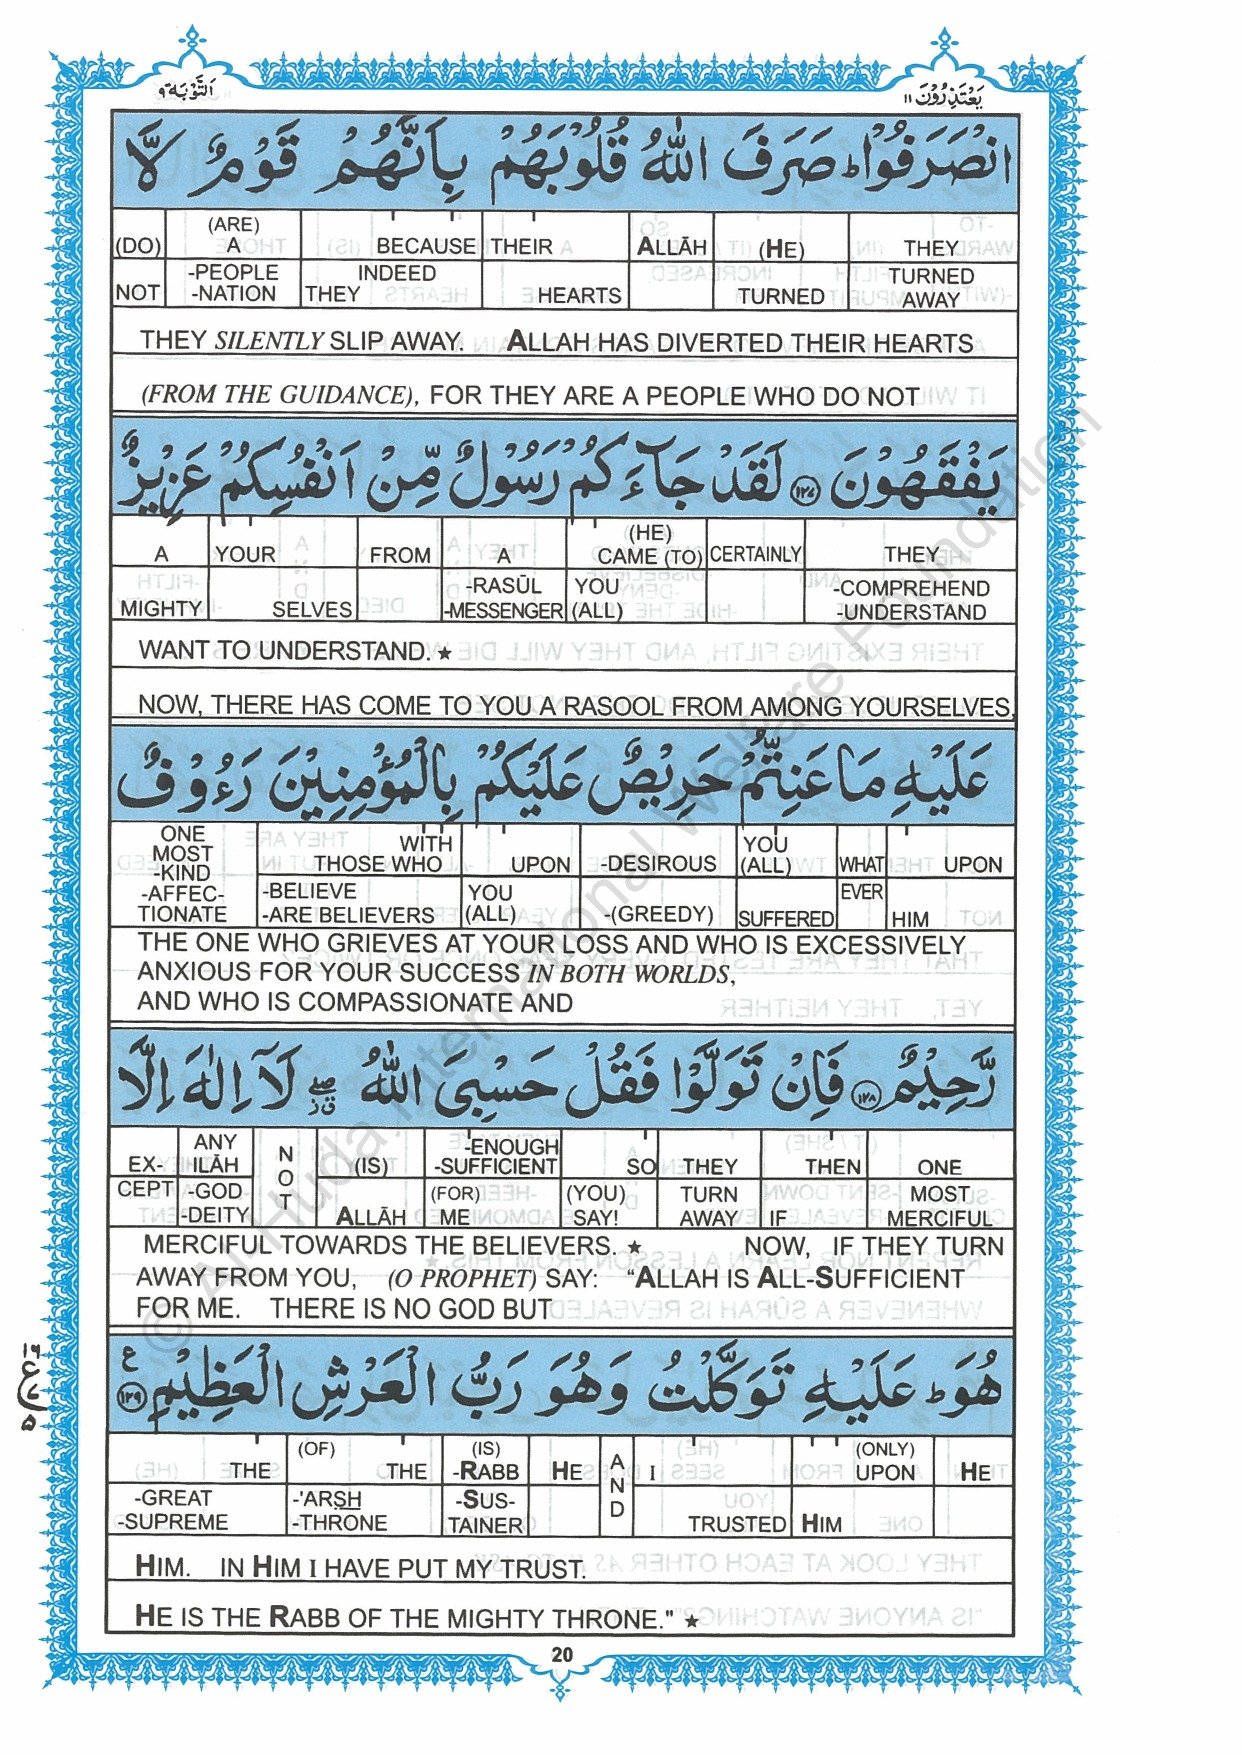 التَّوْبَة ٩
يَعْتَذِرُوْنَ ١١
انْصَرَفُوْا ؕ صَرَفَ اللّٰهُ قُلُوْبَهُمْ بِاَنَّهُمْ قَوْمٌ لَّا
(DO) (ARE) A BECAUSE THEIR ALLĀH (HE) THEY
NOT -PEOPLE -NATION INDEED THEY HEARTS TURNED TURNED AWAY
THEY SILENTLY SLIP AWAY. ALLAH HAS DIVERTED THEIR HEARTS
(FROM THE GUIDANCE), FOR THEY ARE A PEOPLE WHO DO NOT
يَفْقَهُوْنَ ﴿١٢٧﴾ لَقَدْ جَآءَكُمْ رَسُوْلٌ مِّنْ اَنْفُسِكُمْ عَزِيْزٌ
A YOUR FROM A (HE) CAME (TO) CERTAINLY THEY
MIGHTY SELVES -RASŪL -MESSENGER YOU (ALL) -COMPREHEND -UNDERSTAND
WANT TO UNDERSTAND. ★
NOW, THERE HAS COME TO YOU A RASOOL FROM AMONG YOURSELVES,
عَلَيْهِ مَا عَنِتُّمْ حَرِيْصٌ عَلَيْكُمْ بِالْمُؤْمِنِيْنَ رَءُوْفٌ
ONE MOST -KIND WITH THOSE WHO UPON -DESIROUS YOU (ALL) WHAT UPON
-AFFEC- TIONATE -BELIEVE -ARE BELIEVERS YOU (ALL) -(GREEDY) SUFFERED EVER HIM
THE ONE WHO GRIEVES AT YOUR LOSS AND WHO IS EXCESSIVELY
ANXIOUS FOR YOUR SUCCESS IN BOTH WORLDS,
AND WHO IS COMPASSIONATE AND
رَّحِيْمٌ ﴿١٢٨﴾ فَاِنْ تَوَلَّوْا فَقُلْ حَسْبِىَ اللّٰهُ ۖ لَآ اِلٰهَ اِلَّا
EX- ANY ILĀH NOT (IS) -ENOUGH -SUFFICIENT SO THEY THEN ONE
CEPT -GOD -DEITY ALLĀH (FOR) ME (YOU) SAY! TURN AWAY IF MOST MERCIFUL
MERCIFUL TOWARDS THE BELIEVERS. ★ NOW, IF THEY TURN
AWAY FROM YOU, (O PROPHET) SAY: “ALLAH IS ALL-SUFFICIENT
FOR ME. THERE IS NO GOD BUT
هُوَ ؕ عَلَيْهِ تَوَكَّلْتُ وَهُوَ رَبُّ الْعَرْشِ الْعَظِيْمِ ﴿١٢٩﴾ ع
THE (OF) THE (IS) -RABB HE AND I (ONLY) UPON HE
-GREAT -SUPREME -'ARSH -THRONE -SUS- TAINER TRUSTED HIM
HIM. IN HIM I HAVE PUT MY TRUST.
HE IS THE RABB OF THE MIGHTY THRONE." ★
20
© Al-Huda International Welfare Foundation